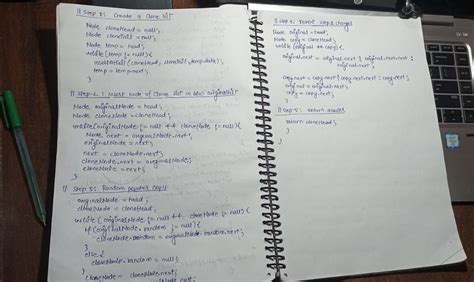 // Step 1: Create a Clone list
Node cloneHead = null;
Node cloneTail = null;
Node temp = head;
while (temp != null){
insertAtTail (cloneHead, cloneTail, temp.data);
temp = temp.next;
}
// Step-2: insert node of Clone list in b/w originalList
Node originalNode = head;
Node cloneNode = cloneHead;
while(originalNode != null && cloneNode != null){
Node next = originalNode.next;
originalNode =
next = cloneNode.next;
cloneNode.next = originalNode;
cloneNode = next;
}
// Step 3: Random pointer copy
originalNode = head;
cloneNode = cloneHead;
while (originalNode != null && cloneNode != null){
if (originalNode.random != null){
cloneNode.random = originalNode.random.next;
}
else {
cloneNode.random = null;
}
cloneNode = cloneNode.next;
// Step 4: Revert step 2 changes
Node original = head;
Node copy = cloneHead;
while (original && copy){
original.next = original.next ? original.next.next :
original.next;
copy.next = copy.next ? copy.next.next : copy.next;
original = original.next;
copy = copy.next;
}
// Step 5: return
return cloneHead;
}
}